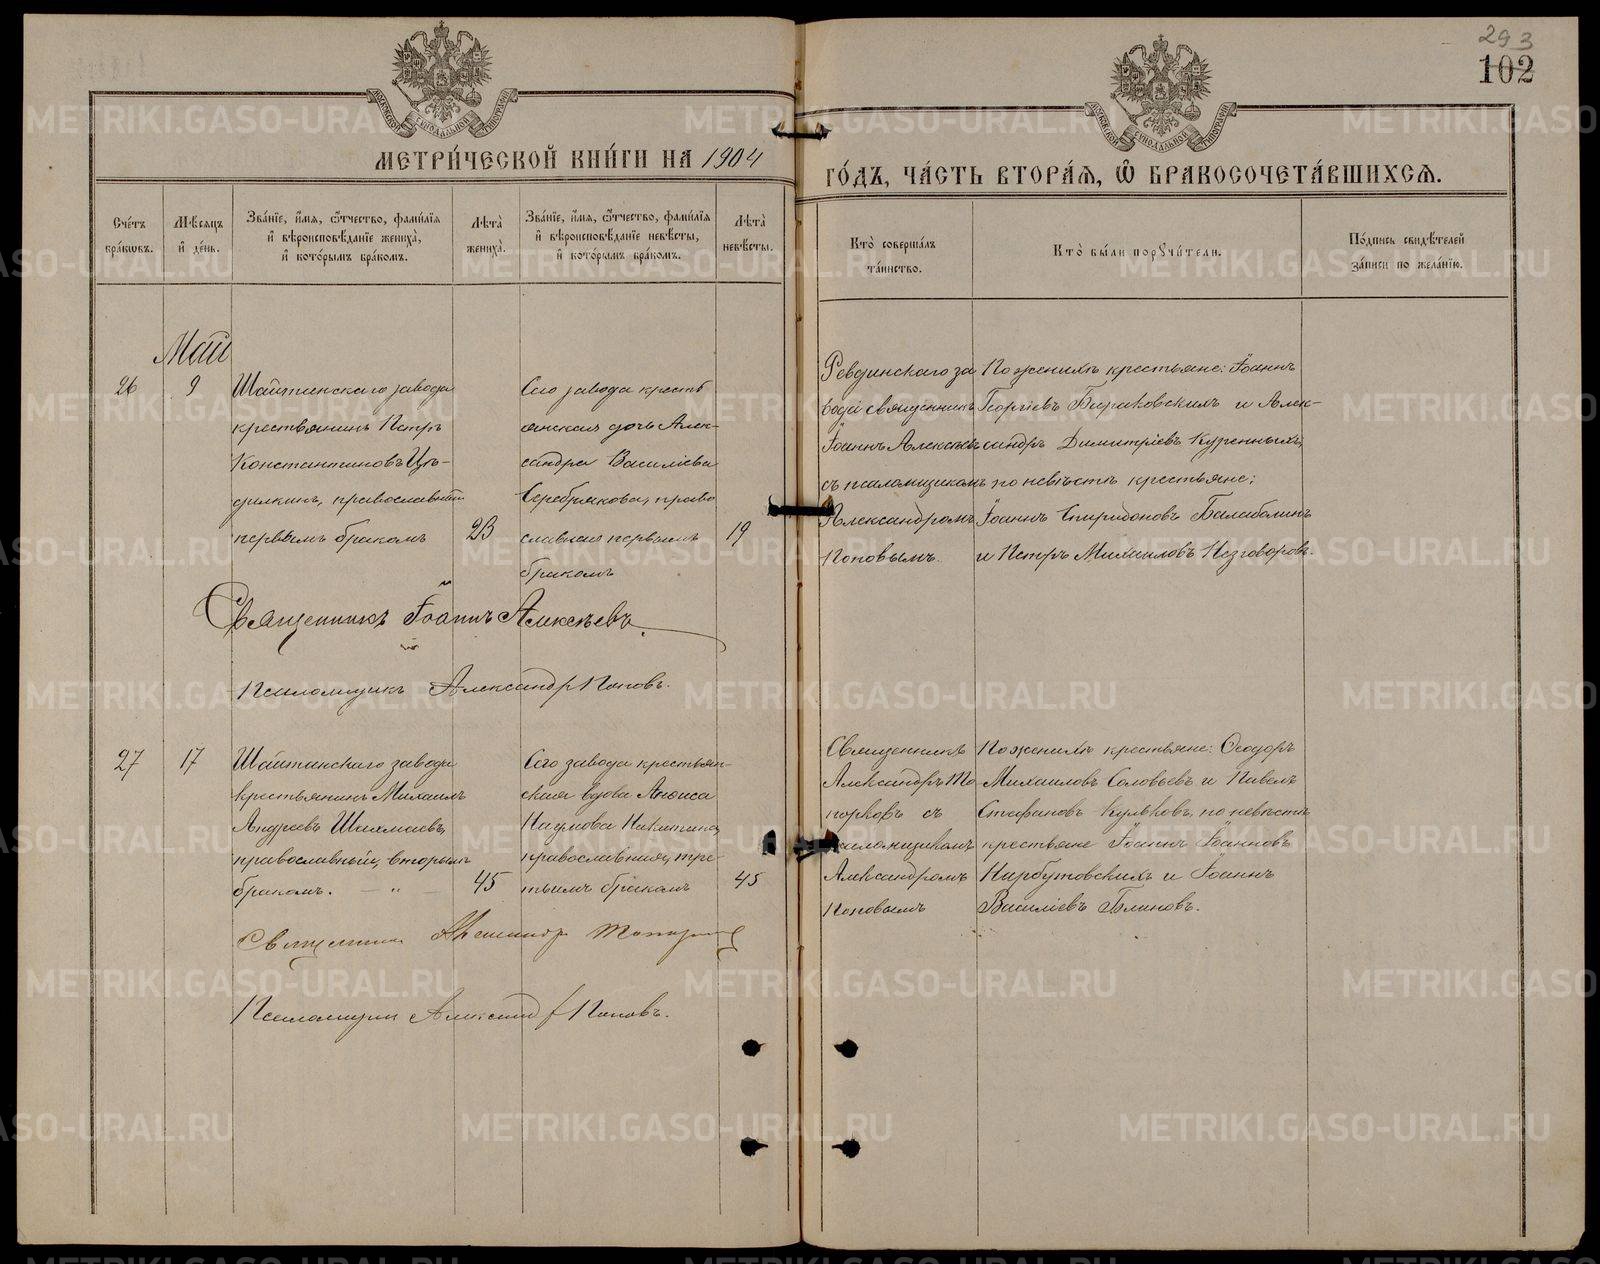 293
102
МЕТРИ́ЧЕСКОЙ КНИ́ГИ НА 1904
ГО́ДЪ, ЧА́СТЬ ВТОРА́Я, Ѽ БРАКОСОЧЕТА́ВШИХСЯ.
Сче́тъ бра́кѡвъ.
Мѣ́сяцъ и҆ де́нь.
Зва́нїе, и҆́мя, ѻ҆́тчество, фами́лїя
и҆ вѣроисповѣ́данїе жениха̀,
и҆ кото́рымъ бра́комъ.
Лѣта̀ жениха̀.
Зва́нїе, и҆́мя, ѻ҆́тчество, фами́лїя
и҆ вѣроисповѣ́данїе невѣ́сты,
и҆ кото́рымъ бра́комъ.
Лѣта̀ невѣ́сты.
Кто̀ соверша́лъ
та́инство.
Кто̀ бы́ли порꙋчи́тели.
По́дпись свидѣ́телей
за́писи по жела́нїю.
Май
26
9
Шайтанскаго завода
крестьянинъ Петръ
Константиновъ
православный
первымъ бракомъ
23
Сего завода кресть
янская дочь Алек-
сандра Василіева
Серебрякова, право
славная первымъ
бракомъ
19
Ревдинскаго за
вода священникъ
Іоаннъ Алексѣевъ
съ псаломщикомъ
Александромъ
Поповымъ.
По женихѣ крестьяне: Іоаннъ
Георгіевъ Бираковскихъ и Алек-
сандръ Димитріевъ Куренныхъ;
по невѣстѣ крестьяне:
Іоаннъ Спиридоновъ Балабалинъ
и Петръ Михаиловъ Незговоровъ.
Священникъ Іоаннъ Алексѣевъ.
Псаломщикъ Александръ Поповъ.
27
17
Шайтанскаго завода
крестьянинъ Михаилъ
Андреевъ Шахмаевъ,
православный, вторымъ
бракомъ. — „ —
45
Сего завода крестьян-
ская вдова Анѳиса
Наумова Никитина,
православная, тре-
тьимъ бракомъ
45
Священникъ
Александръ То
порковъ съ
псаломщикомъ
Александромъ
Поповымъ
По женихѣ крестьяне: Ѳеодоръ
Михаиловъ Соловьевъ и Павелъ
Стефановъ Кульковъ, по невѣстѣ
крестьяне Іоаннъ Іоанновъ
Нарбутовскихъ и Іоаннъ
Василіевъ Блиновъ.
Священникъ Александръ Топорковъ
Псаломщикъ Александръ Поповъ.
METRIKI.GASO-URAL.RU